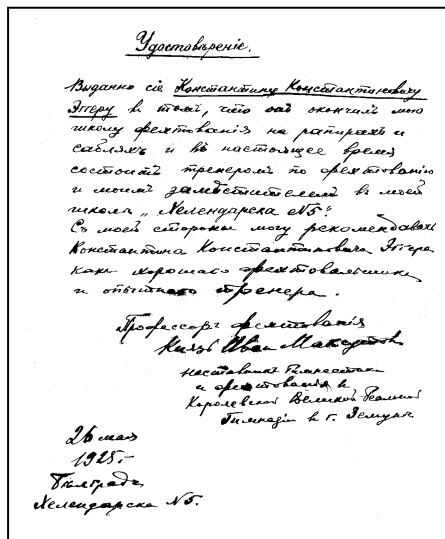 Удостовѣреніе.
Выданно сіе Константину Константиновичу
Эггеру в томъ, что онъ окончилъ мою
школу фехтованія на рапирахъ и
сабляхъ и въ настоящее время
состоитъ тренеромъ по фехтованію
и моимъ замѣстителемъ в моей
школѣ „Хелендарска №5".
Съ моей стороны могу рекомендовать
Константина Константиновича Эггера
какъ хорошаго фехтовальщика
и опытнаго тренера.
Профессоръ фехтованія
Князь Иван
наставникъ Гимнастики
и фехтованія в
Королевской Великой Реальной
Гимназіи в г. Земунѣ
26 мая
1925.-
Бѣлградъ
Хелендарска №5.